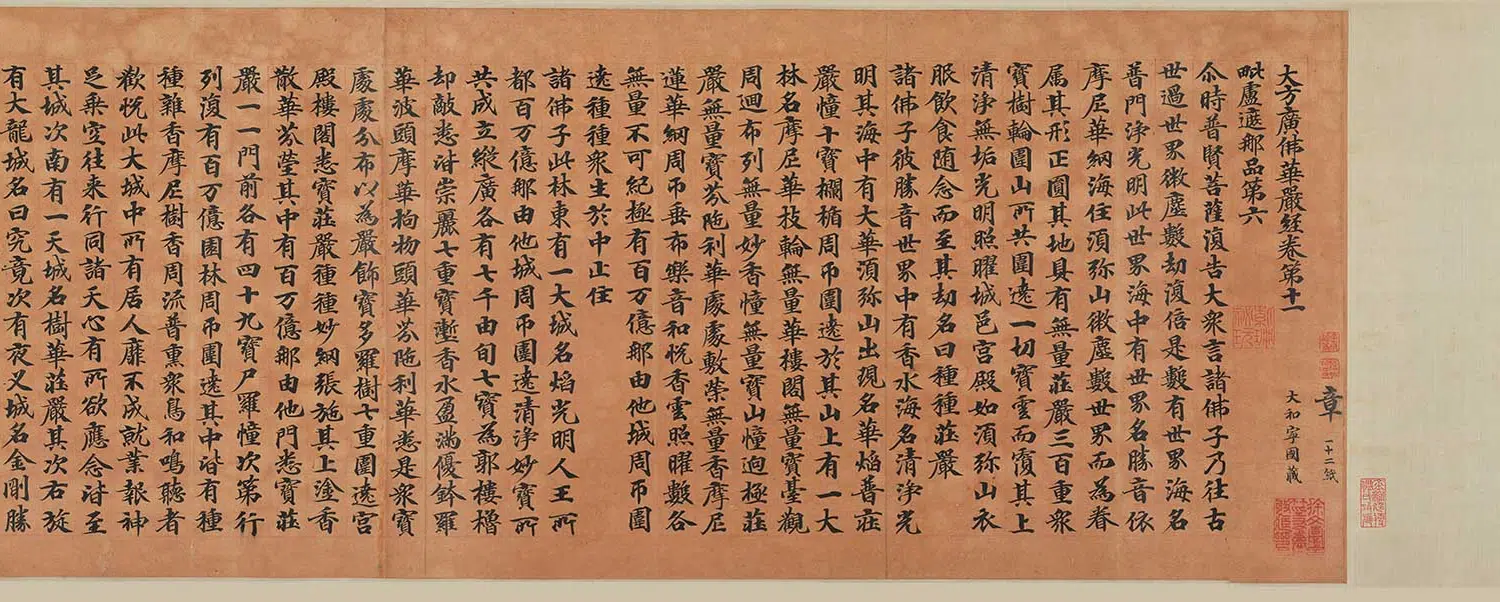 章
一十二紙
大和寧國藏
大方廣佛華嚴経卷第十一
毗盧遮那品第六
尒時普賢菩薩復告大衆言諸佛子乃往古
世過世界微塵數劫復倍是數有世界海名
普門淨光明此世界海中有世界名勝音依
摩尼華網海住須弥山微塵數世界而為眷
属其形正圓其地具有無量莊嚴三百重衆
寶樹輪圍山所共圍遶一切寶雲而覆其上
清淨無垢光明照曜城邑宮殿如須弥山衣
服飲食随念而至其劫名曰種種莊嚴
諸佛子彼勝音世界中有香水海名清淨光
明其海中有大華須弥山出現名華焰普莊
嚴幢十寶欄楯周帀圍遶於其山上有一大
林名摩尼華枝輪無量華樓閣無量寶臺觀
周迴布列無量妙香幢無量寶山幢迥極莊
嚴無量寶芬陁利華處處敷榮無量香摩尼
蓮華網周帀垂布樂音和悅香雲照曜數各
無量不可紀極有百万億那由他城周帀圍
遶種種衆生於中止住
諸佛子此林東有一大城名焰光明人王所
都百万億那由他城周帀圍遶清淨妙寶所
共成立縱廣各有七千由旬七寶為郭樓櫓
却敵悉皆崇麗七重寶塹香水盈滿優鉢羅
華波頭摩華拘物頭華芬陁利華悉是衆寶
處處分布以為嚴飾寶多羅樹七重圍遶宮
殿樓閣悉寶莊嚴種種妙網張施其上塗香
散華芬瑩其中有百万億那由他門悉寶莊
嚴一一門前各有四十九寶尸羅幢次第行
列復有百万億園林周帀圍遶其中皆有種
種雜香摩尼樹香周流普熏衆鳥和鳴聽者
歡悅此大城中所有居人靡不成就業報神
足乗空往来行同諸天心有所欲應念皆至
其城次南有一天城名樹華莊嚴其次右旋
有大龍城名曰究竟次有夜叉城名金剛勝